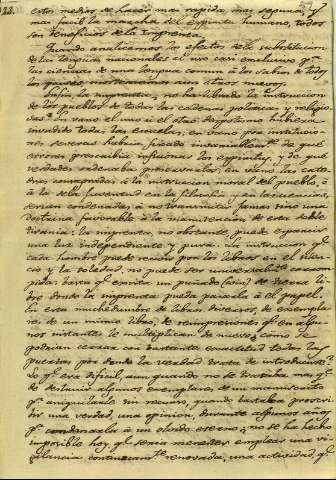 122.
estos medios de hacer mas rapida, mas segura, y
mas facil la marcha del espiritu humano, todos
son beneficios de la imprenta.
Quando analicemos los efectos de la substitucion
de las lenguas nacionales al uso casi exclusivo q.e
las ciencias de una lengua comun a los sabios de todos
los paises, mostraremos aun otros nuevos.
la imprenta, no ha librado la instruccion
de los pueblos de todas las cadenas politicas y religio-
sas? En vano el uno ú el otro despotismo hubiera
invadido todas las escuelas, en vano por institucio-
nes severas habria fixado de que
errores prescribia inficionar los espiritus, y de que
verdades ordenaba preservarlos; en vano las cate-
dras consagradas á la instruccion moral del pueblo, ó
á la de la juventud en la filosofia y en las ciencias,
serian condenadas á no transmitir jamas sino una
doctrina favorable á la manutencion de esta doble
tirania: la imprenta, no obstante, puede esparcir
una luz independiente y pura. La instruccion q.e
cada hombre puede recibir por los libros en el silen-
cio y la soledad, no puede ser universalm.te corrom-
pida: basta q.e exista un puñado de tierra li-
bre donde la imprenta pueda pasarla á el papel.
En esta muchedumbre de libros diversos, de exempla-
res de un mismo libro, de reimpresiones q.e en algu-
nos instantes lo multiplican de nuevo, cómo se
podrian cerrar con bastante exactitud todas las
puertas por donde la verdad trata de introducirse?
Lo q.e era dificil, aun quando no se trataba mas q.e
de destruir algunos exemplares de un manuscrito
p.a aniquilarle sin recurso, quando bastaba proscri-
bir una verdad, una opinion, durante algunos años,
p.a condenarla á un olvido eterno, no se ha hecho
imposible hoy, q.e seria menester emplear una vi-
gilancia continuam.te renovada, una actividad, q.e